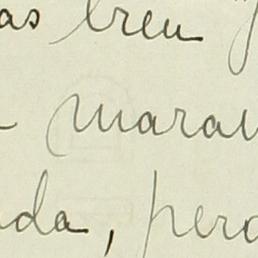 as breu
marav
da, pero